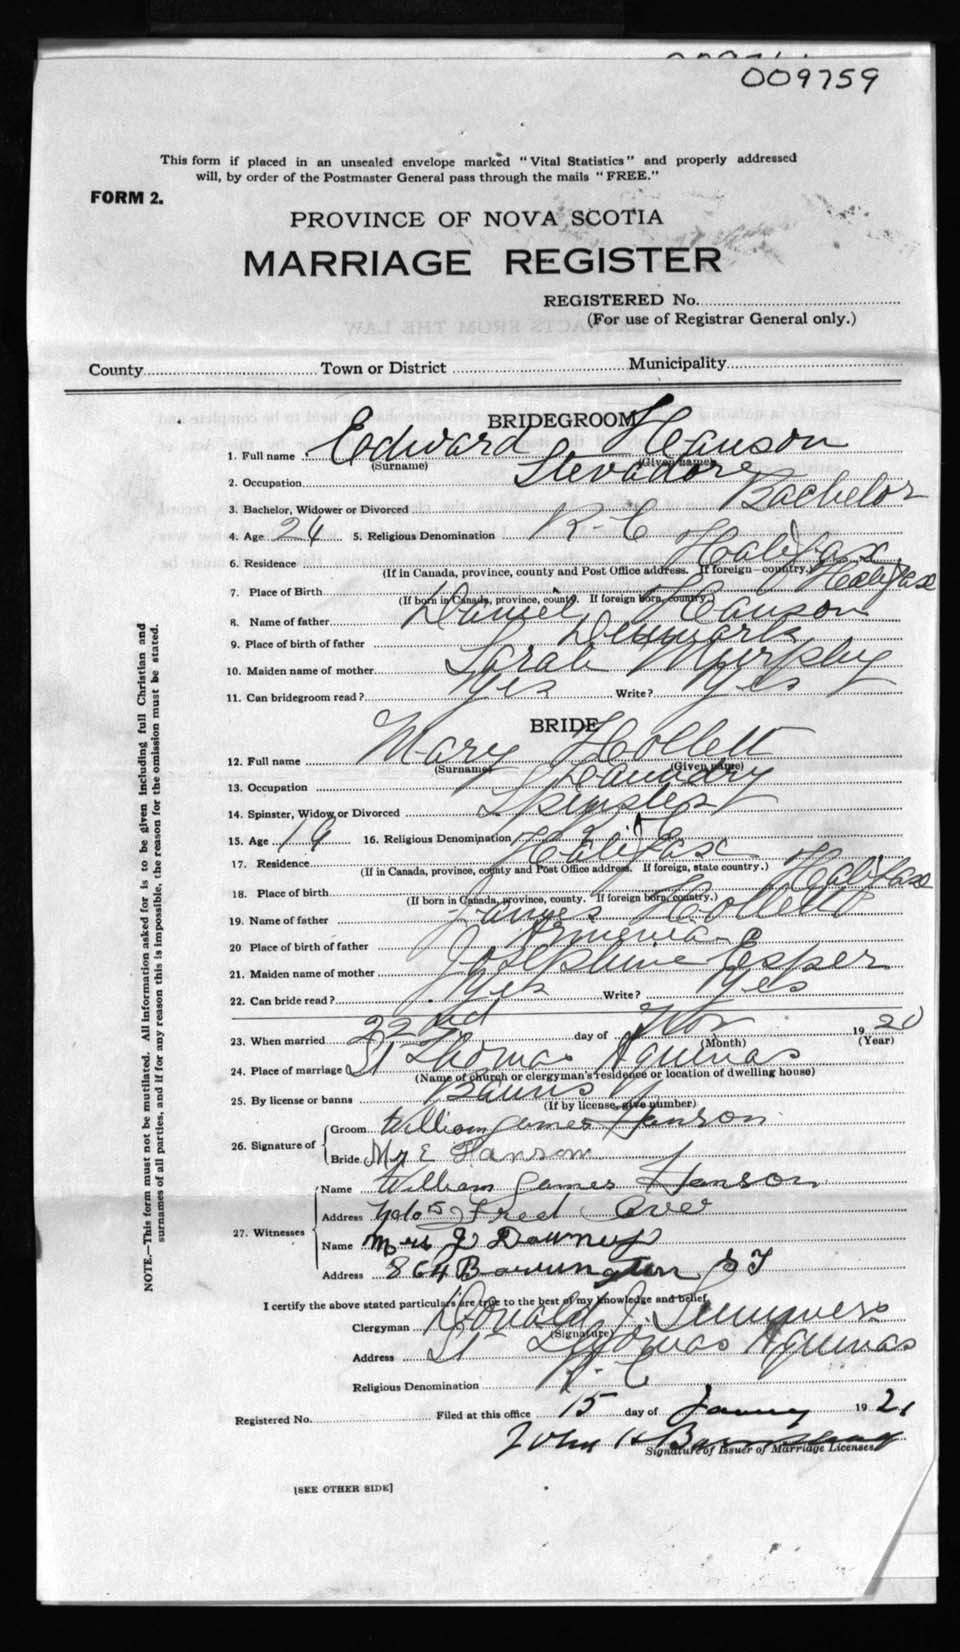 009759
This form if placed in an unsealed envelope marked "Vital Statistics" and properly addressed
will, by order of the Postmaster General pass through the mails "FREE."
FORM 2.
PROVINCE OF NOVA SCOTIA
MARRIAGE REGISTER
REGISTERED No.
(For use of Registrar General only.)
County Town or District Municipality
BRIDEGROOM
1. Full name Edward Hanson
(Surname) (Given name)
2. Occupation Stevadore
3. Bachelor, Widower or Divorced Bachelor
4. Age 24 5. Religious Denomination R-C
6. Residence Halifax
(If in Canada, province, county and Post Office address. If foreign country.)
7. Place of Birth Halifax
(If born in Canada, province, county. If foreign born, country.)
8. Name of father Daniel Hanson
9. Place of birth of father Denmark
10. Maiden name of mother Sarah Murphy
11. Can bridegroom read? Yes Write? Yes
BRIDE
12. Full name Mary Hollett
(Surname) (Given name)
13. Occupation Laundry
14. Spinster, Widow or Divorced Spinster
15. Age 19 16. Religious Denomination R C
17. Residence Halifax
(If in Canada, province, county and Post Office address. If foreign, state country.)
18. Place of birth Halifax
(If born in Canada, province, county. If foreign born, country.)
19. Name of father James Hollett
20 Place of birth of father Armenia
21. Maiden name of mother Josephine Esper
22. Can bride read? Yes Write? Yes
23. When married 22nd day of Nov 1920
(Month) (Year)
24. Place of marriage St Thomas Aquinas
(Name of church or clergyman's residence or location of dwelling house)
25. By license or banns Banns
(If by license, give number)
26. Signature of Groom William James Hanson
Bride Mrs E Hanson
27. Witnesses Name William James Hanson
Address Fred
Name Mrs J Downey
Address 864 Barrington ST
I certify the above stated particulars are true to the best of my knowledge and belief.
Clergyman Donald J Summers
(Signature)
Address St Thomas Aquinas
Religious Denomination R. C
Registered No. Filed at this office 15 day of January 1921
John H
Signature of Issuer of Marriage Licenses
[SEE OTHER SIDE]
NOTE.—This form must not be mutilated. All information asked for is to be given including full Christian and
surnames of all parties, and if for any reason this is impossible, the reason for the omission must be stated.